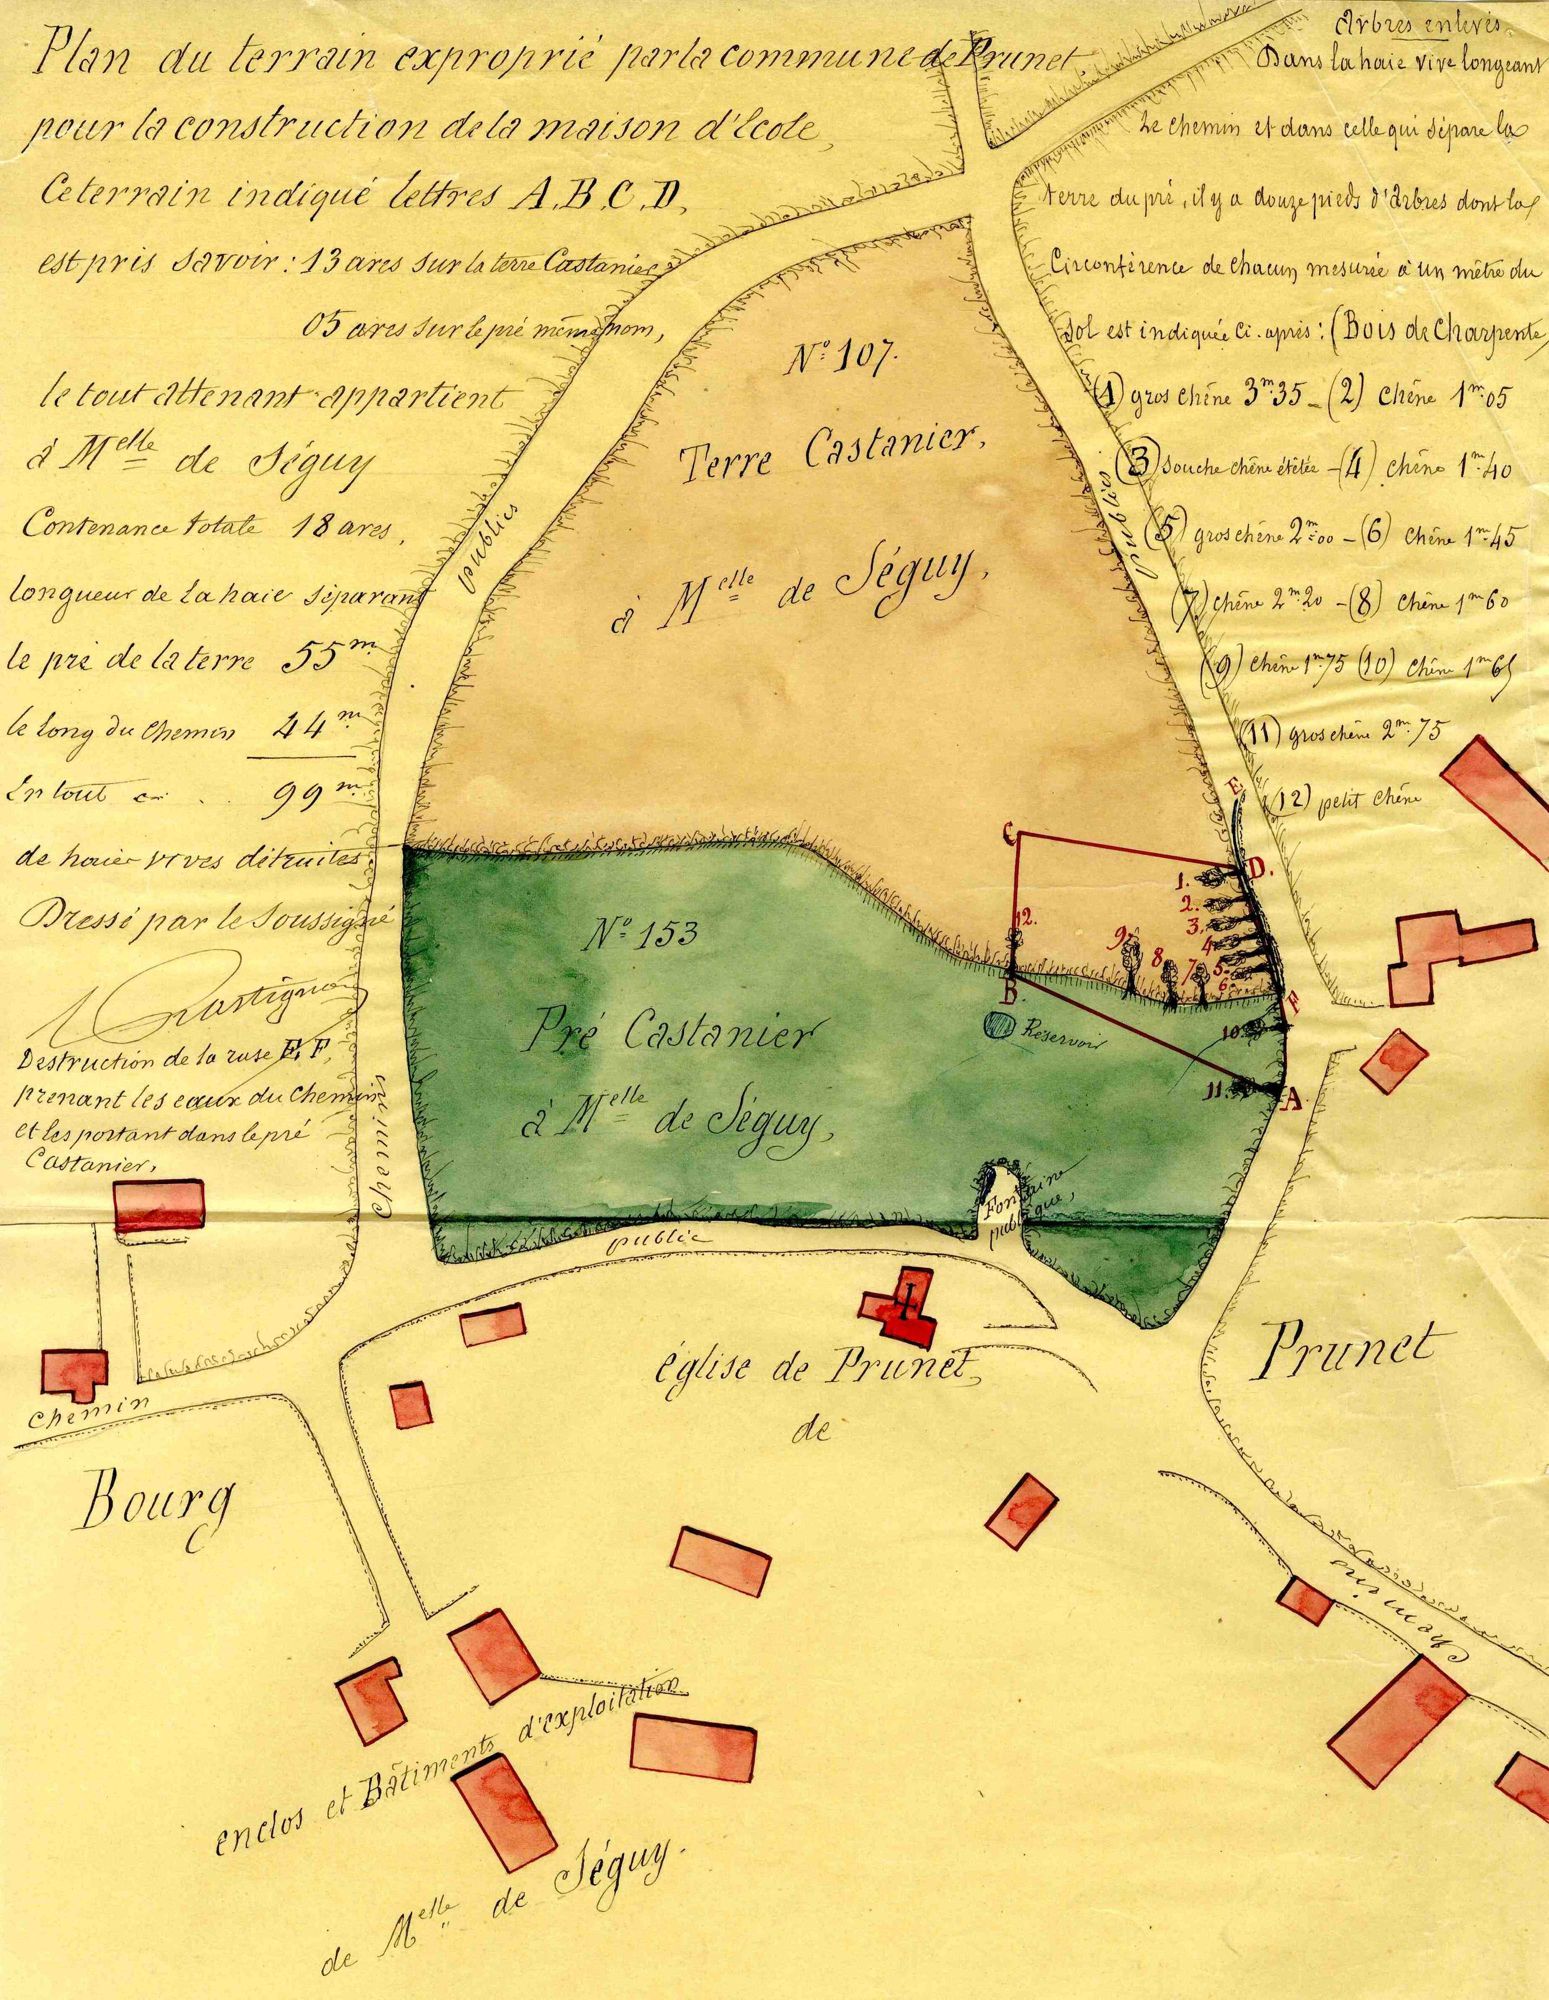 Plan du terrain exproprié par la commune de Prunet
pour la construction de la maison d'école,
Ce terrain indiqué lettres A, B, C, D,
est pris savoir : 13 ares sur la terre Castanier
05 ares sur le pré même nom,
le tout attenant appartient
à Melle de Séguy
Contenance totale 18 ares,
longueur de la haie séparant
le pré de la terre 55m
le long du chemin 44m
En tout 99m
de haies vives détruites
Dressé par le soussigné
Destruction de la rase E, F,
prenant les eaux du chemin
et les portant dans le pré
Castanier,
Arbres enlevés.
Dans la haie vive longeant
le chemin et dans celle qui sépare la
terre du pré, il y a douze pieds d'arbres dont la
Circonférence de chacun mesurée à un mètre du
sol est indiquée Ci. après : (Bois de Charpente)
(1) gros chêne 3m35 - (2) Chêne 1m05
(3) souche chêne étêtée - (4) chêne 1m40
(5) gros chêne 2m00 - (6) chêne 1m45
(7) chêne 2m20 - (8) chêne 1m60
(9) chêne 1m75 (10) chêne 1m65
(11) gros chêne 2m75
(12) petit chêne
No 107.
Terre Castanier,
à Melle de Séguy,
publics
publics
E
C
D.
1.
2.
3.
4
5.
6.
7
8
9
12.
B.
F
10.
11.
A
No 153
Pré Castanier
à Melle de Séguy,
Réservoir
Fontaine
publique,
Chemins
public
église de Prunet,
de
Prunet
Chemin
Bourg
Chemins
enclos et Bâtiments d'exploitation
de Melle de Séguy.